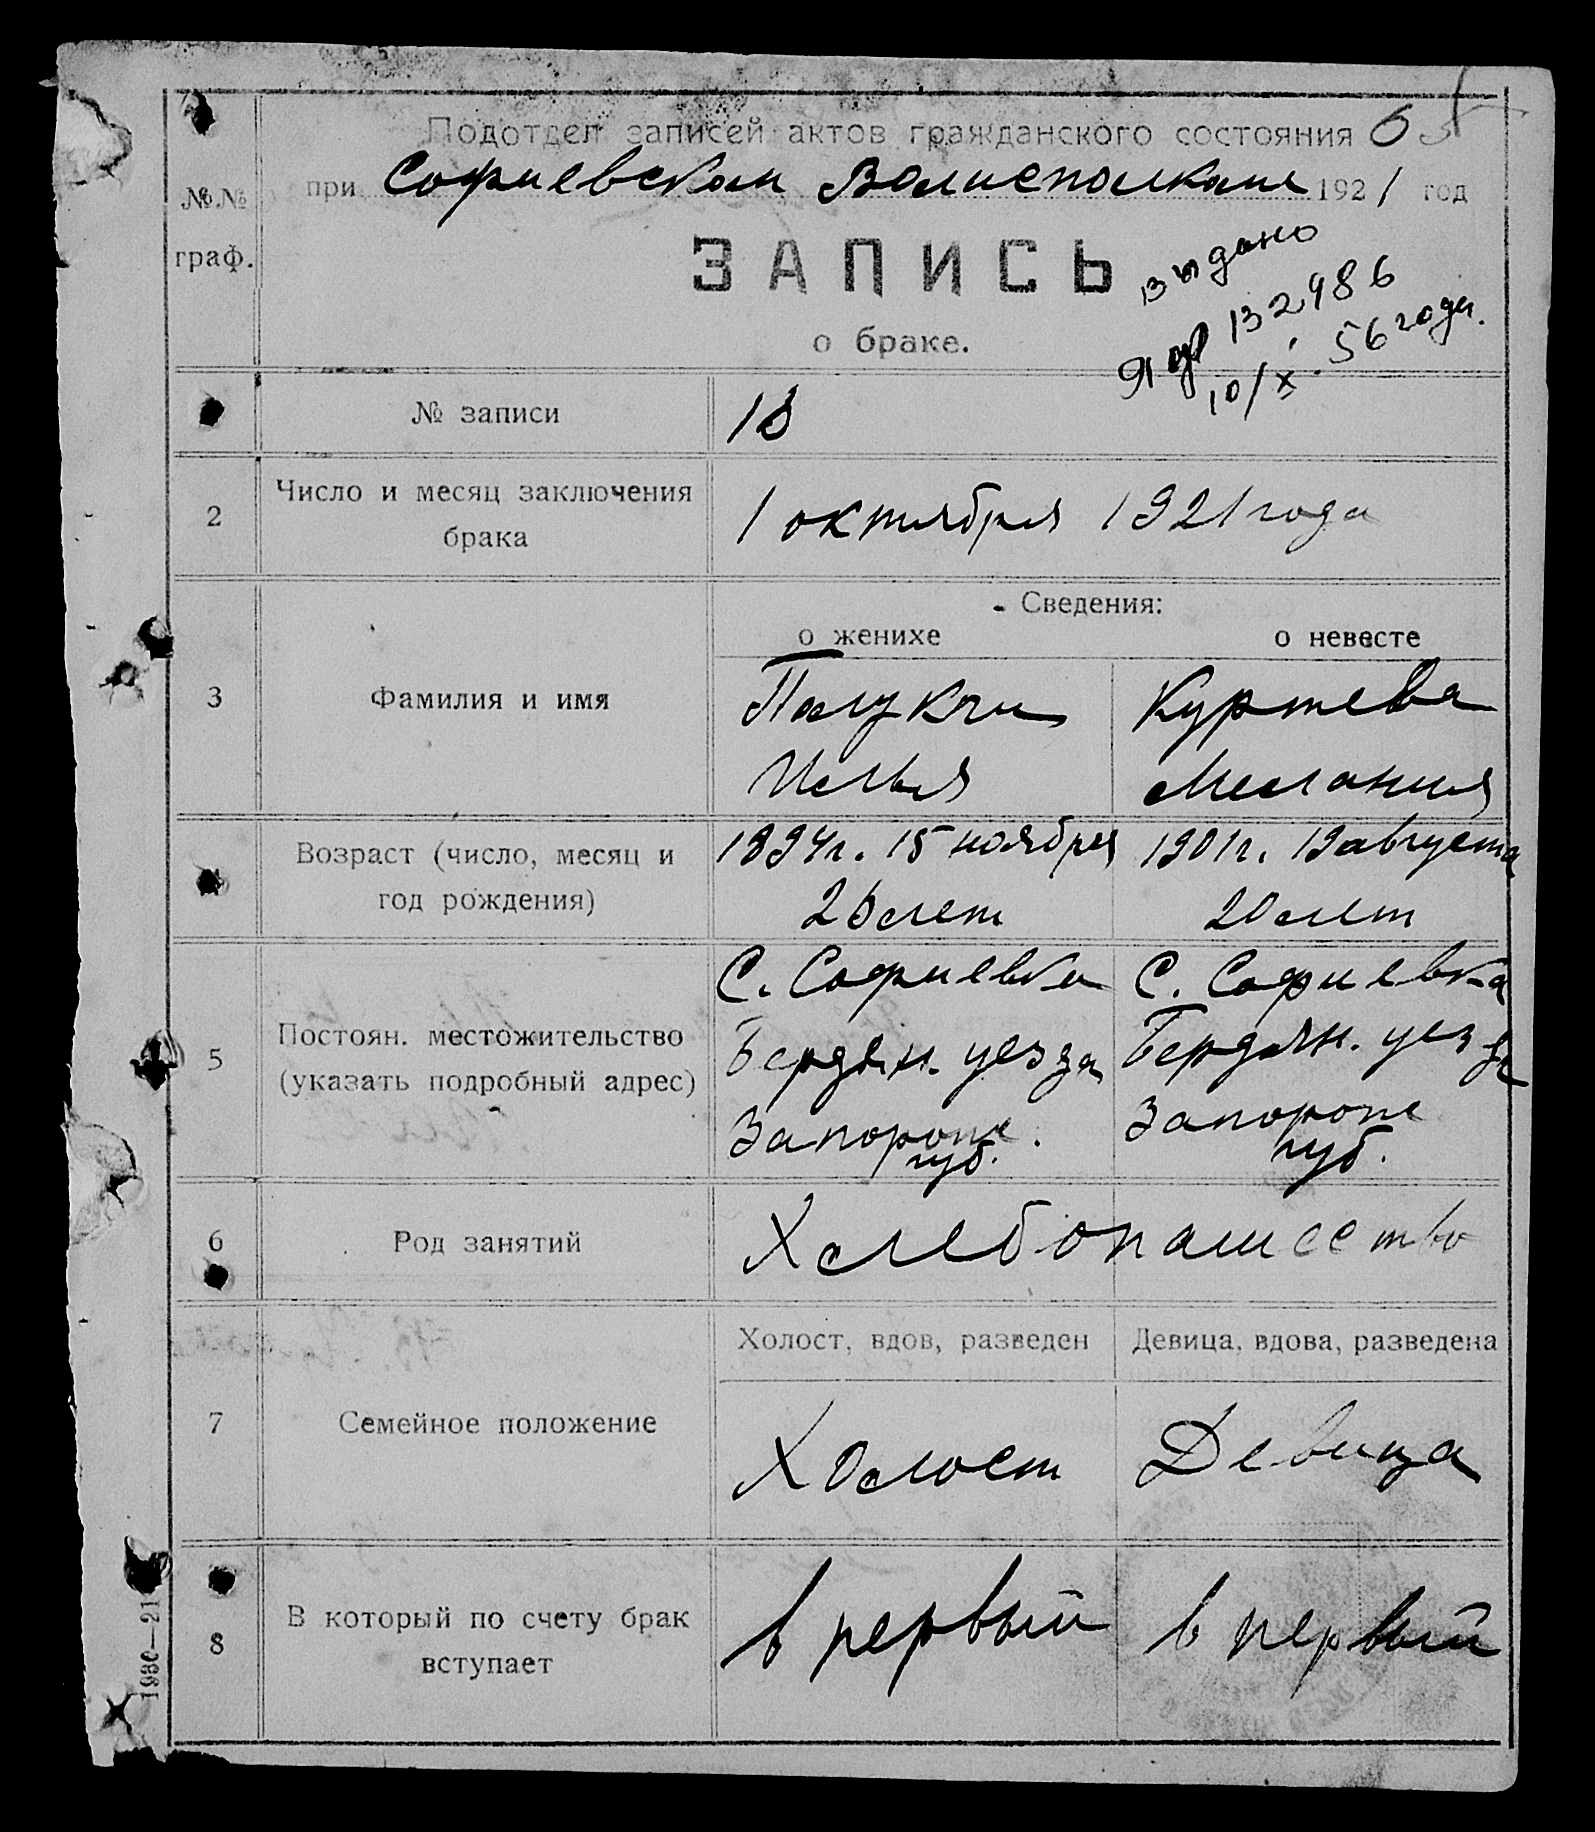 Подотдел записей актов гражданского состояния 6
при Софиевском Волисполкоме 1921 год
№№
граф.
ЗАПИСЬ
о браке.
выдано
132986
10/X. 56 года.
№ записи
13
2
Число и месяц заключения
брака
1 октября 1921 года
3
Фамилия и имя
Сведения:
о женихе
о невесте
Куртева
Илья
Мелания
Возраст (число, месяц и
год рождения)
1894г. 15 ноября
26 лет
1901г. 19 августа
20 лет
5
Постоян. местожительство
(указать подробный адрес)
С. Софиевка
Бердян. уезда
Запорож.
губ.
С. Софиевка
Бердян. уезда
Запорож
губ.
6
Род занятий
Хлебопашество
7
Семейное положение
Холост, вдов, разведен
Девица, вдова, разведена
Холост
Девица
8
В который по счету брак
вступает
в первый
в первый
1980—21